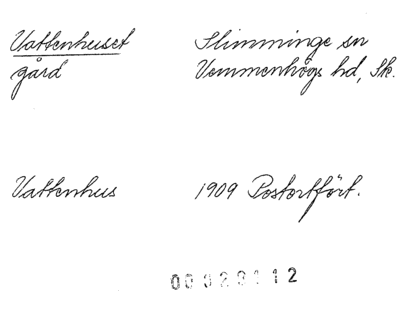 Vattenhuset Slimminge sn
gård Vemmenhögs hd, Sk.
Vattenhus 1909 Postortfört.